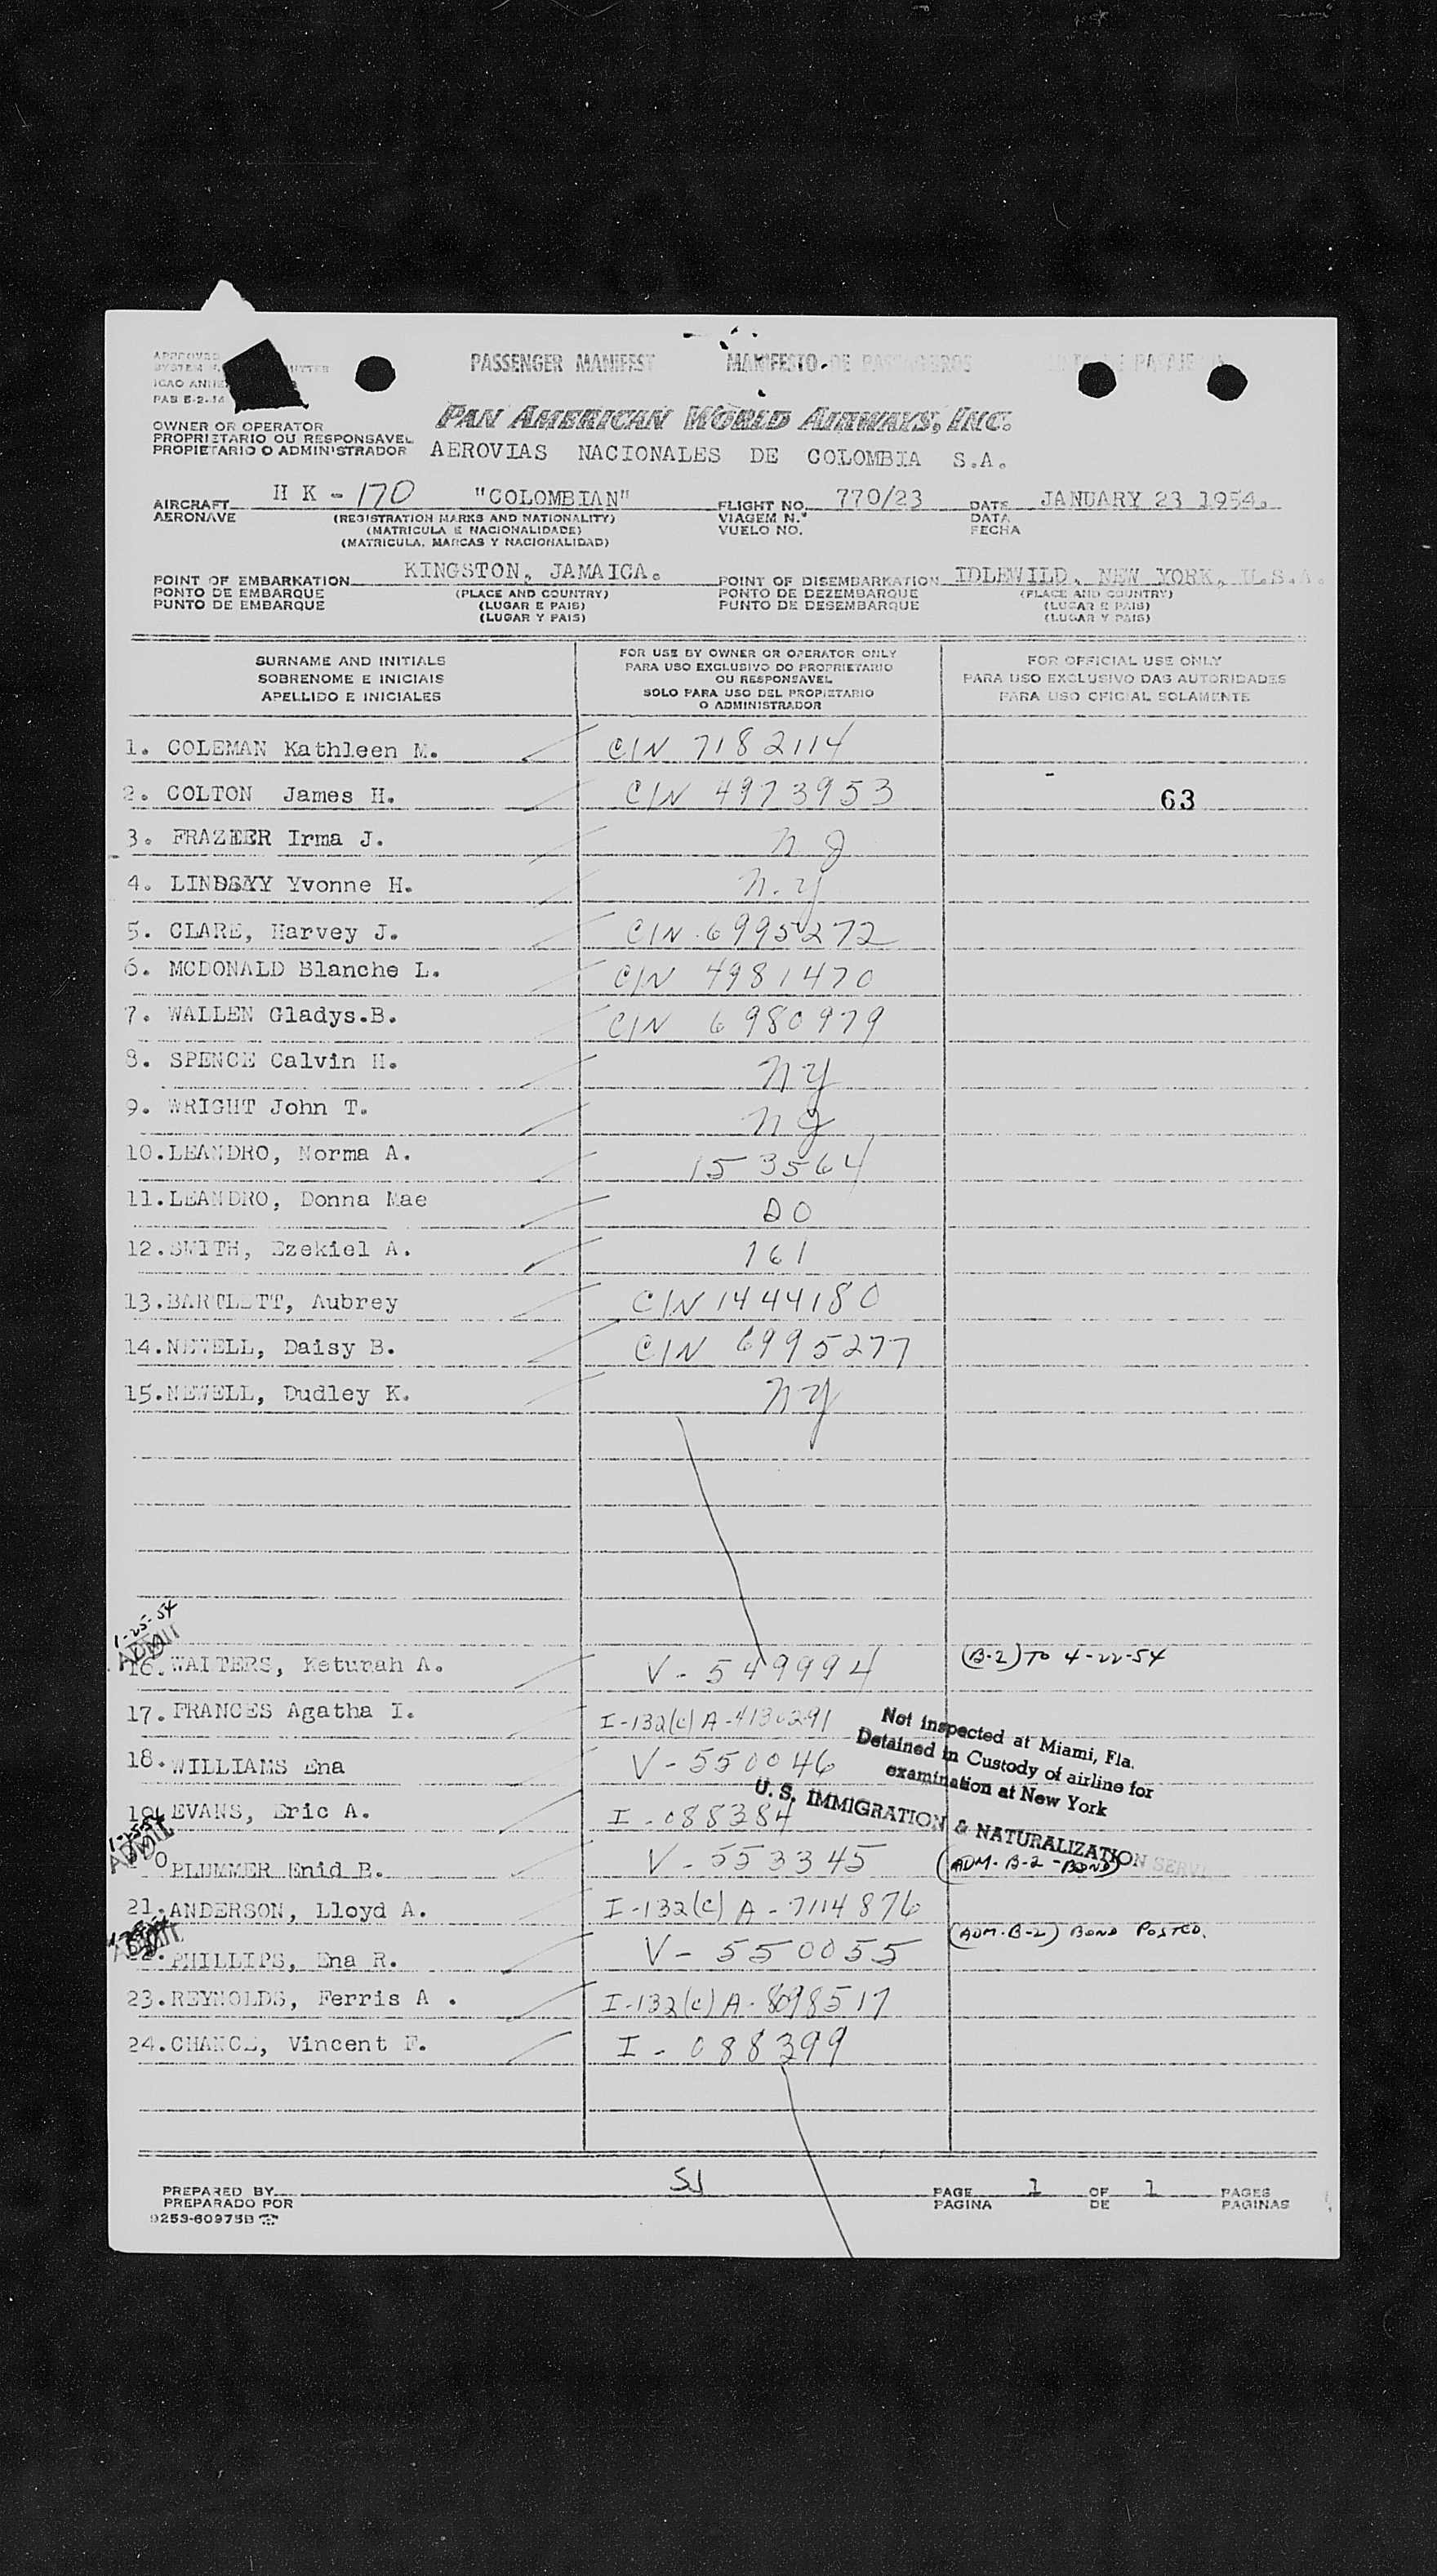 PASSENGER MANIFEST MANIFESTO DE PASSAGEROS
APPROVED
SYSTEM
ICAO
PAB
PAN AMERICAN WORLD AIRWAYS, INC.
OWNER OR OPERATOR
PROPRIETARIO OU RESPONSAVEL
PROPIETARIO O ADMINISTRADOR AEROVIAS NACIONALES DE COLOMBIA S.A.
AIRCRAFT H K - 170 "COLOMBIAN" FLIGHT NO. 770/23 DATE JANUARY 23 1954.
AERONAVE (REGISTRATION MARKS AND NATIONALITY) VIAGEM N.º DATA
(MATRICULA E NACIONALIDADE) VUELO NO. FECHA
(MATRICULA, MARCAS Y NACIONALIDAD)
POINT OF EMBARKATION KINGSTON, JAMAICA. POINT OF DISEMBARKATION IDLEWILD, NEW YORK, U.S.A.
PONTO DE EMBARQUE (PLACE AND COUNTRY) PONTO DE DEZEMBARQUE (PLACE AND COUNTRY)
PUNTO DE EMBARQUE (LUGAR E PAIS) PUNTO DE DESEMBARQUE (LUGAR E PAIS)
(LUGAR Y PAIS) (LUGAR Y PAIS)
SURNAME AND INITIALS
SOBRENOME E INICIAIS
APELLIDO E INICIALES
FOR USE BY OWNER OR OPERATOR ONLY
PARA USO EXCLUSIVO DO PROPRIETARIO
OU RESPONSAVEL
SOLO PARA USO DEL PROPIETARIO
O ADMINISTRADOR
FOR OFFICIAL USE ONLY
PARA USO EXCLUSIVO DAS AUTORIDADES
PARA USO OFICIAL SOLAMENTE
1. COLEMAN Kathleen M. CIN 7182114
2. COLTON James H. CIN 4973953 63
3. FRAZEER Irma J. NY
4. LINDSAYY Yvonne H. N.Y
5. CLARE, Harvey J. CIN 6995272
6. MCDONALD Blanche L. CIN 4981470
7. WALLEN Gladys.B. CIN 6980979
8. SPENCE Calvin H. NY
9. WRIGHT John T. NY
10.LEANDRO, Norma A. 153564
11.LEANDRO, Donna Mae DO
12.SMITH, Ezekiel A. 161
13.BARTLETT, Aubrey CIN 1444180
14.NEWELL, Daisy B. CIN 6995277
15.NEWELL, Dudley K. NY
1-25-54
ADMIT
16.WAITERS, Keturah A. V - 549994 (B-2) TO 4-22-54
17.FRANCES Agatha I. I-132(c) A-4130291
Not inspected at Miami, Fla.
Detained in Custody of airline for
examination at New York
U. S. IMMIGRATION & NATURALIZATION SERV
18.WILLIAMS Ena V - 550046
19. EVANS, Eric A. I - 088384
ADMIT
20 PLUMMER Enid B. V - 553345 (ADM. B-2 - BOND)
21.ANDERSON, Lloyd A. I-132(c) A - 7114876
ADMIT
22. PHILLIPS, Ena R. V - 550055 (ADM. B-2) BOND POSTED.
23.REYNOLDS, Ferris A . I-132(c) A - 8098517
24.CHANCE, Vincent F. I - 088399
PREPARED BY SJ PAGE 1 OF 1 PAGES
PREPARADO POR PAGINA DE PAGINAS
9253-60975B